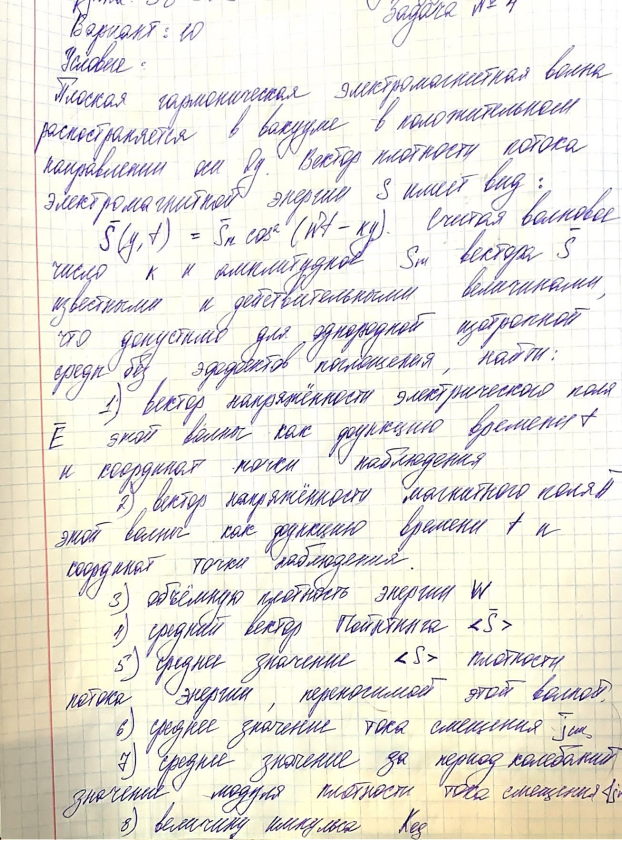 Задача № 4
Вариант: 10
Условие:
Плоская гармоническая электромагнитная волна
распостраняется в вакууме в положительном
направлении оси Oy. Вектор плотности потока
электромагнитной энергии S имеет вид:
S̄(y,t) = S̄m cos² (wt - ky). Считая волновое
число к и амплитудное Sm вектора S̄
известными и действительными величинами,
что допустимо для однородной изотропной
среды без эффектов поглощения, найти:
1) вектор напряжённости электрического поля
Ē этой волны как функцию времени t
и координат точки наблюдения
2) вектор напряжённости магнитного поля H̄
этой волны как функцию времени t и
координат точки наблюдения.
3) объёмную плотность энергии W
4) средний вектор Пойнтинга <S̄>
5) среднее значение <S> плотности
потока энергии, переносимой этой волной.
6) среднее значение тока смещения j̄см
7) среднее значение за период колебаний
значение модуля плотности тока смещения
8) величину импульса Kед